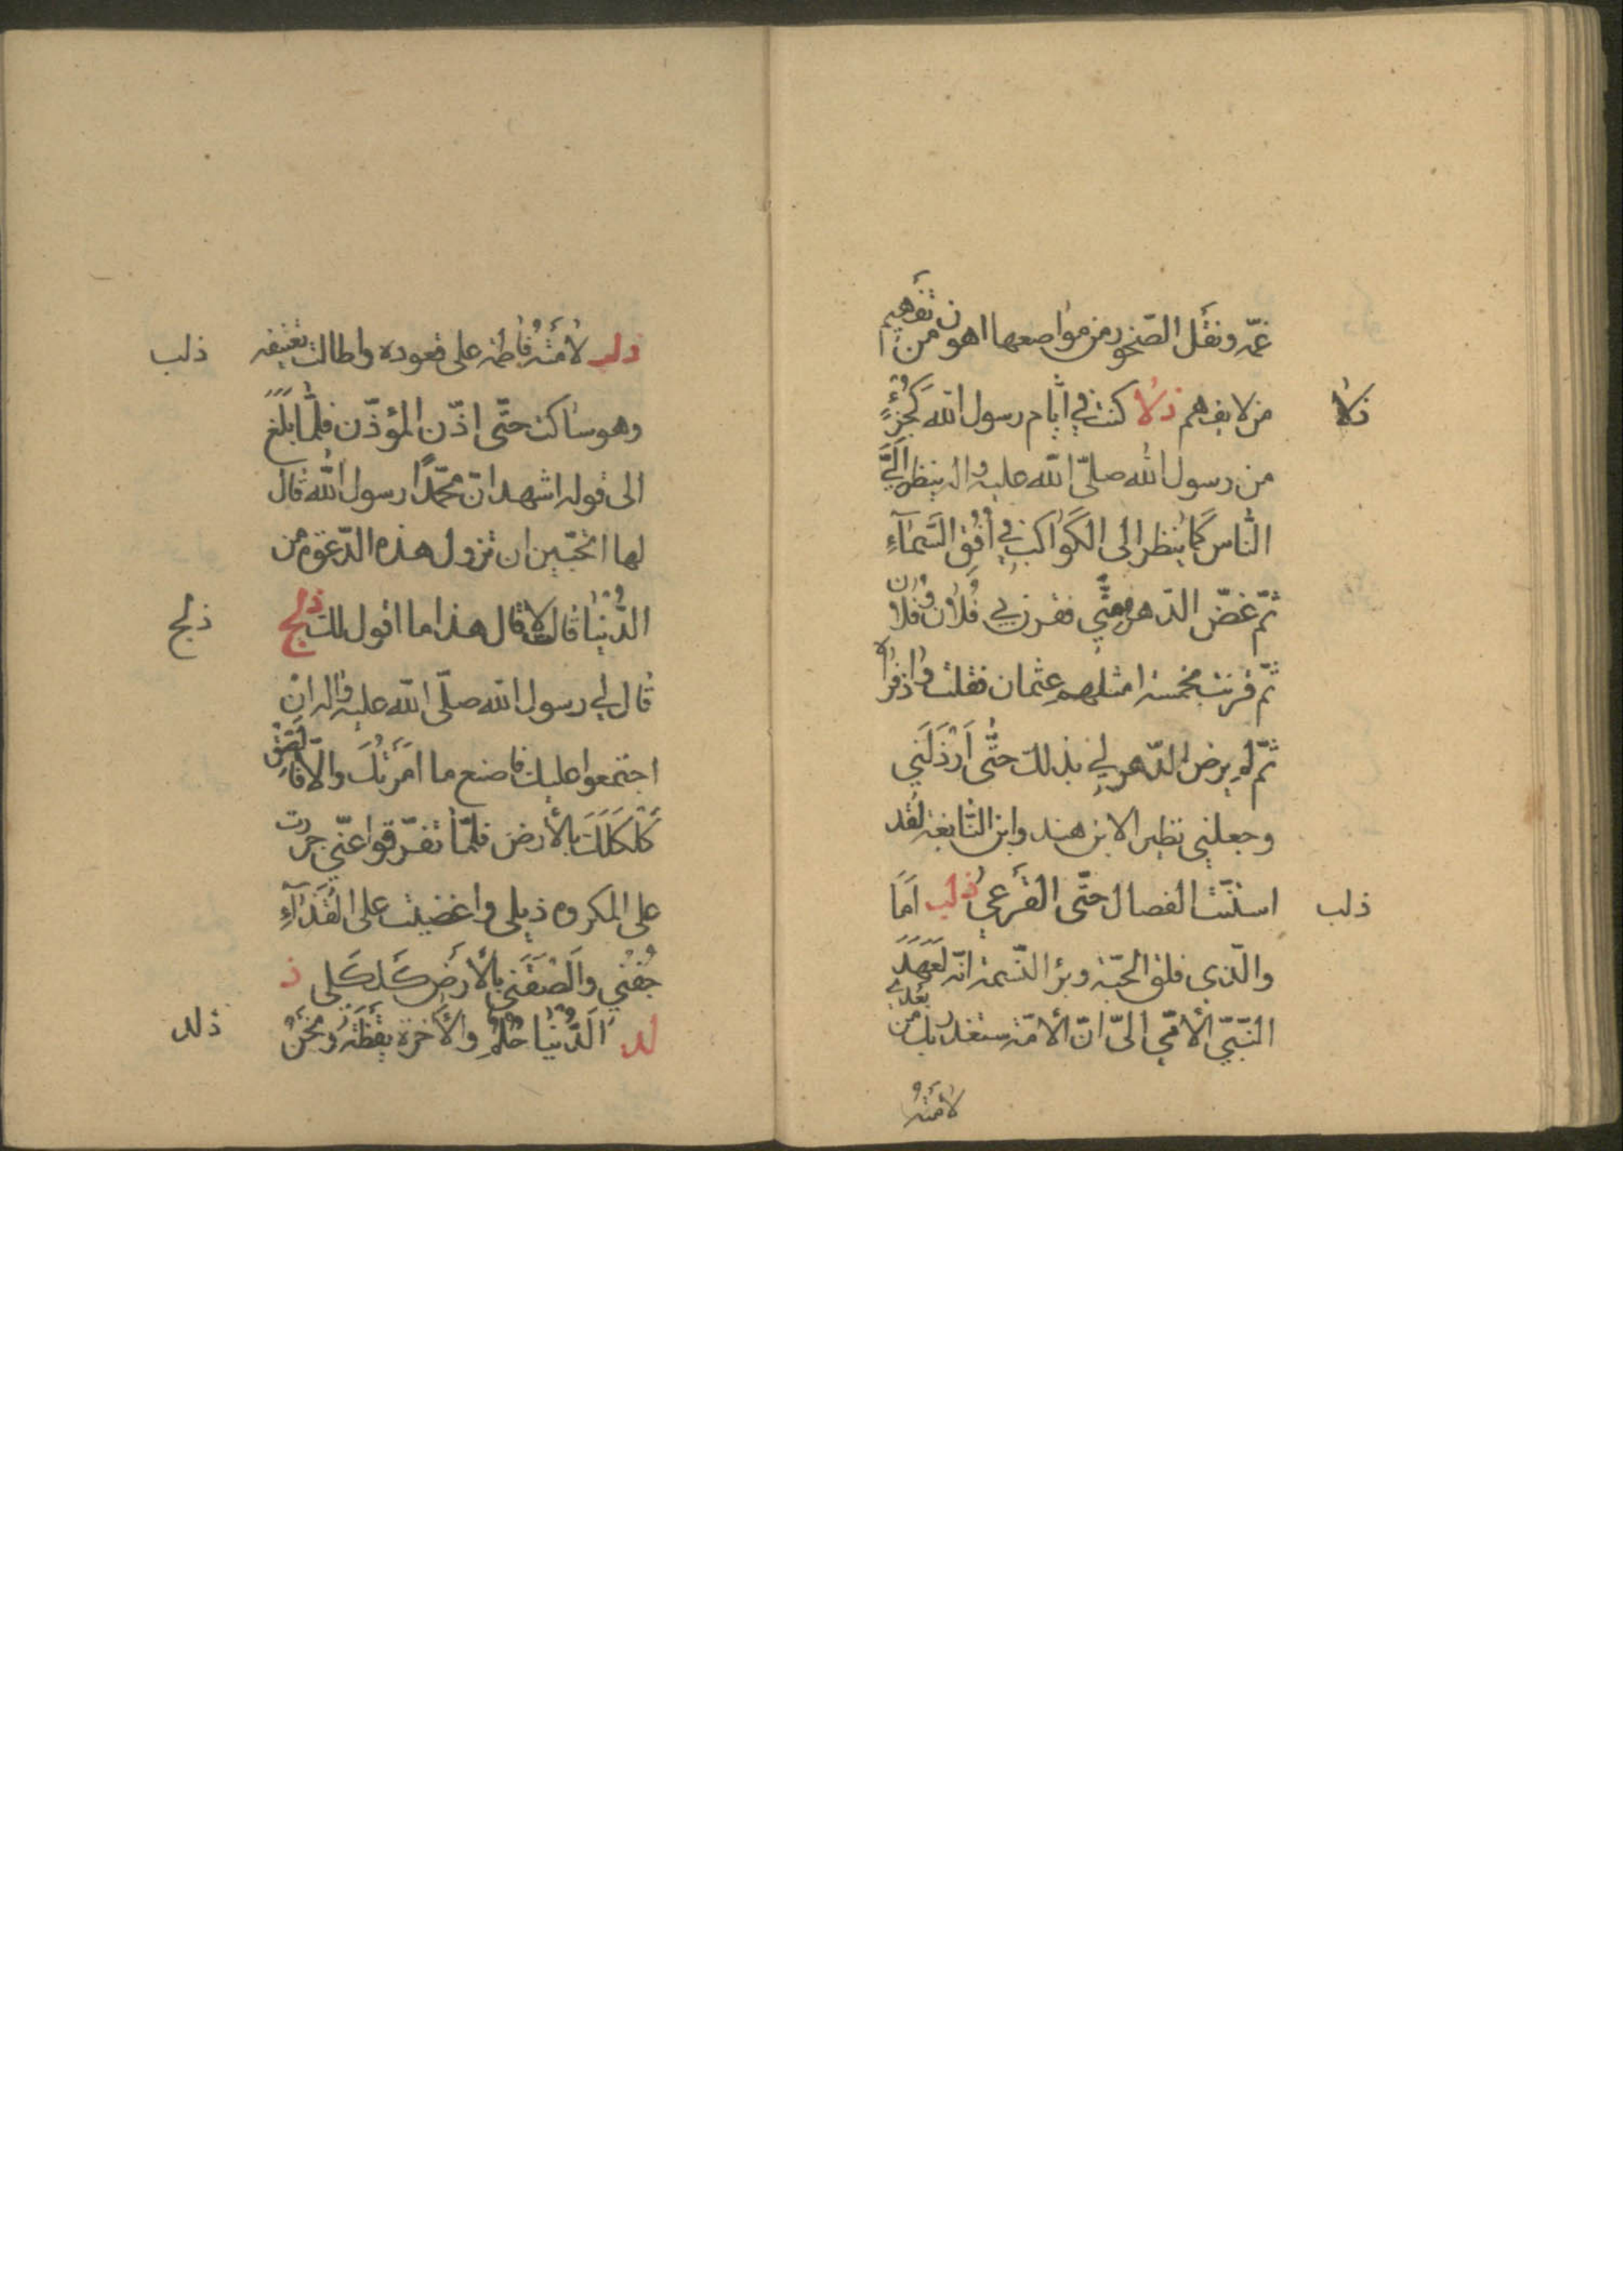 غمّه ونقل الصّخور من مواضعها اهون من تفهيم
من لا يفهم ذلا كنت في ايّام رسول الله كَجُزْءٍ
ذلا
من رسول الله صلّى الله عليه واله ينظر اِلَيَّ
النّاس كَما يُنظر الى الكَواكب في اُفُقِ السَّمآءِ
ثمّ غضّ الدّهر منّي فقرن بي فُلان وفُلان
ثمّ قرنت بخمسة امثلهم عثمان فقلت واذفراه
ثمّ لم يرض الدّهر لي بذلك حتّى اَرْذَلَني
وجعلني نظيرا لابن هند وابن النّابغة لقد
استنّت الفصال حتّى القَرعى ذلب اَمَا
ذلب
والّذى فلق الحبّة وبرا النّسمة انّه لَعَهِدَ
النّبيّ الأمّي اليّ انّ الأمّة ستغدر بك من بعدي
لامَتْهُ
ذلب لامَتْهُ فاطمة على قعوده واطالت تعنيفه
ذلب
وهو ساكت حتّى اذّن المؤذّن فلمّا بَلَغَ
الى قوله اشهد انّ محمّدًا رسول الله قال
لها اتحبّين ان تزول هذه الدّعوة من
الدُّنْيا قالت لا قال هذا ما اقول لك ذلج
ذلج
قال لي رسول الله صلّى الله عليه واله اِنِ
اجتمعوا عليك فاصنع ما اَمَرْتُكَ والّا فاَلصِقْ
كَلْكَلَكَ بالأرض فلمّا تفرّقوا عنّي جررت
على المكروه ذيلي واغضيت على القَذآءِ
جَفْني واَلْصَقْتُ بالأرض كَلكَلي ذ
لد اَلدُّنْيا حُلْمٌ والاَخرة يقظَةٌ ونَحْنُ
ذلد